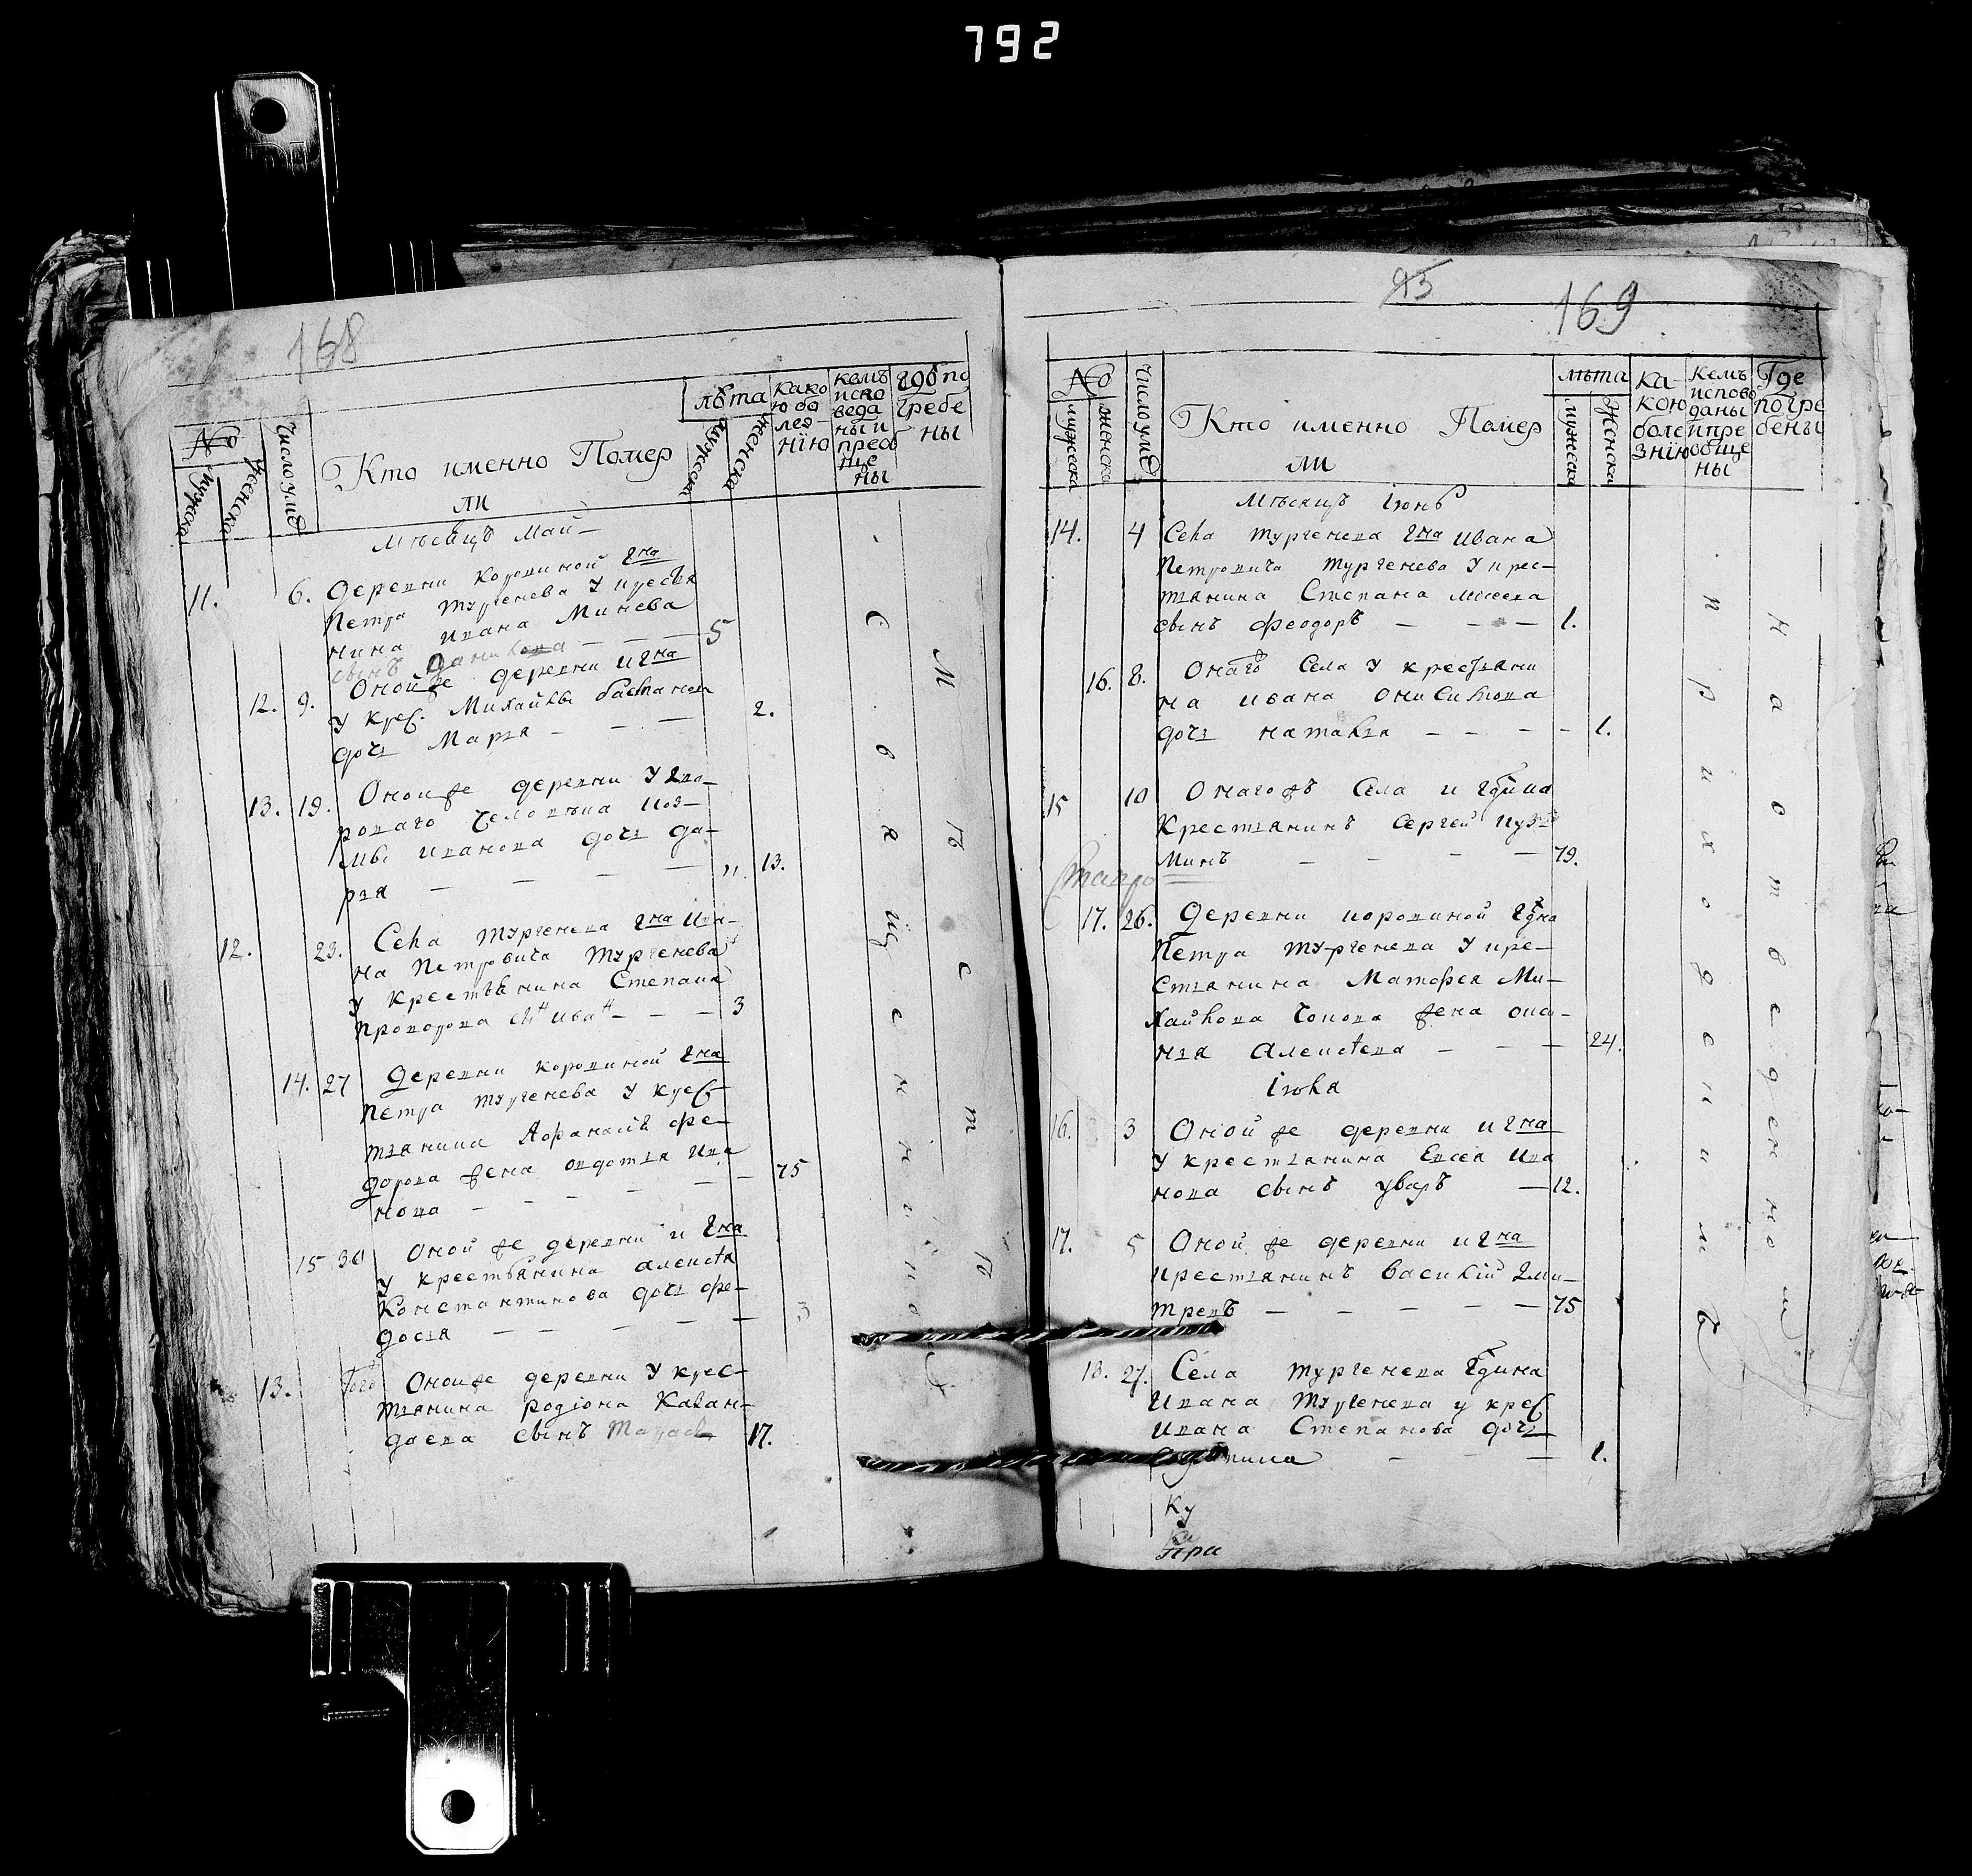 792
168
№
мужеска
женска
Число умер
Кто именно Помер
ли
лѣта
мужеска
женска
како
ю бо
лез
нію
кемъ
испо
веда
ны и
преоб
ще
ны
гдѣ по
гребе
ны
мѣсяцъ Май
11. 6. деревни коровиной гна
Петра тургенева у кресья
нина ивана Минева
сынъ — — — 5
12. 9. Оной же деревни и гна
у крес. Михайлы
дочь Марья — — — 2.
13. 19. Оной же деревни у дво
роваго человека коз
мы иванова дочь да
рья — — — — „ 13.
12. 23. Села тургенева гна ива
на Петровича Тургенева
у крестьянина Степана
прохорова сын иван — — — 3
14. 27 деревни коровиной гна
Петра тургенева у крес
тьянина Афанасия фе
дорова жена авдотья ива
нова — — — — — 75
15 30 Оной же деревни и гна
у крестьянина алексея
Константинова дочь фе
досья — — — — — 3
13. Того Оной же деревни у крес
тьянина родиона
сынъ 17.
С в я щ е н н и к о
М ѣ с т ѣ
93
169
№
мужеска
женска
Число умер
Кто именно Помер
ли
лѣта
мужеска
женска
ка
кою
боле
знію
Кемъ
испов
даны
и пре
обще
ны
Где
погре
бены
Мѣсяцъ іюнь
14. 4 Села тургенева гна Ивана
Петровича тургенева у крес
тьянина Степана мосеева
сынъ феодоръ — — — 1.
16. 8. Онаго Села у крестьяни
на ивана
дочь наталья — — — — 1.
15 10 Онагожъ Села и гдина
Крестьянинъ Сергей кузь
минъ — — — — 79.
17. 26. деревни коровиной гдна
Петра тургенева у кре
стьянина Матфея Ми
хайлова жена
алексеева — — — 24.
іюля
16. 3 Оной же деревни и гна
у крестьянина Евсея ива
нова сынъ уваръ — 12.
17. 5 Оной же деревни и гна
крестьянинъ василій дми
тревъ — — — — — 75
18. 27. Села тургенева гдина
Ивана Тургенева у крес
ивана Степанова дочь
— — 1.
Ку
При
п р и х о д с к и м ъ
н а о т в е д е н н о м